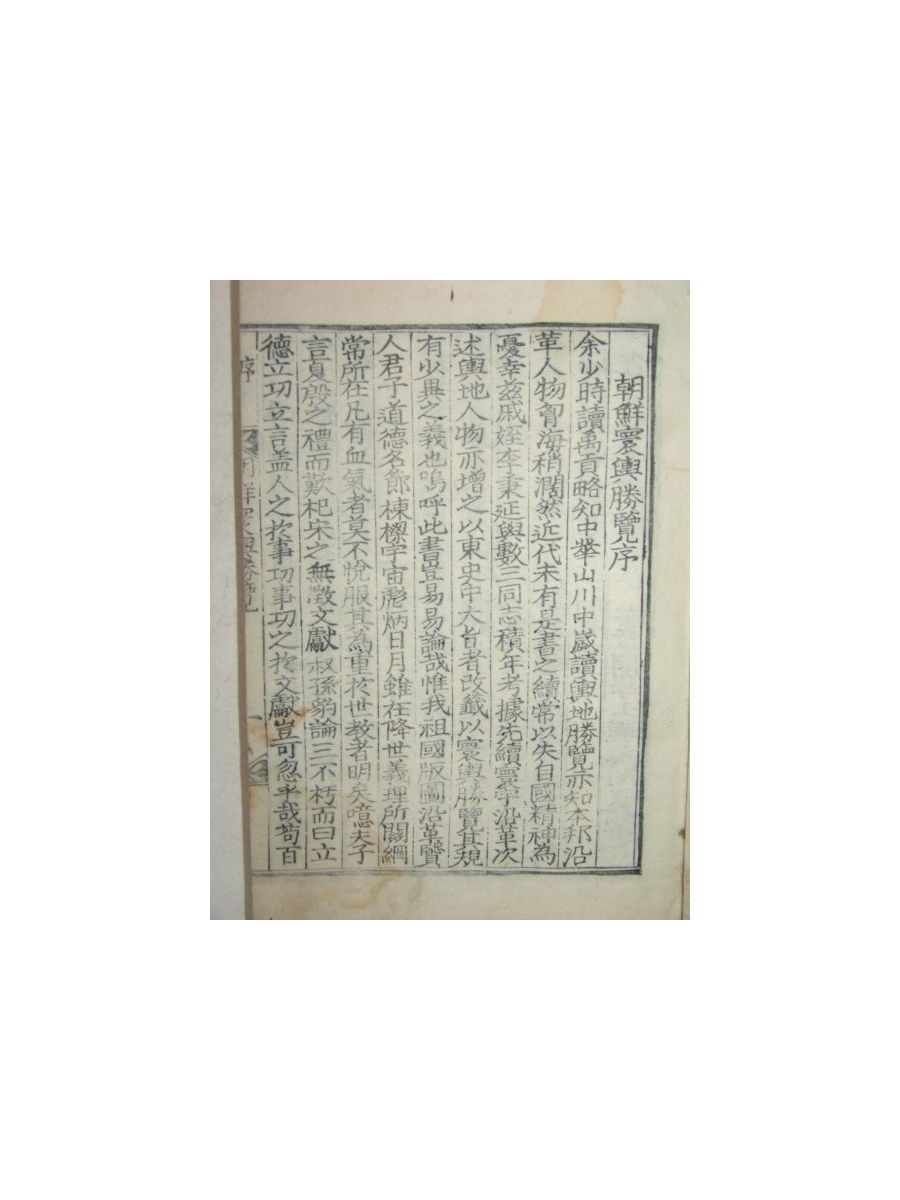 朝鮮寰輿勝覽序
余少時讀禹貢略知中華山川中歲讀輿地勝覽亦知本邦沿
革人物胷海稍濶然近代未有是書之續常以失自國精神為
憂幸玆戚姪李秉延與數三同志積年考據先續寰宇沿革次
述輿地人物亦增之以東史中大旨者改籤以寰輿勝覽其規
有少異之義也嗚呼此書豈易易論哉惟我祖國版圖沿革賢
人君子道德名節棟樑宇宙彪炳日月雖在降世義理所關綱
常所在凡有血氣者莫不悅服其為重於世教者明矣噫夫子
言夏殷之禮而歎杞宋之無徵文獻叔孫豹論三不朽而曰立
德立功立言盖人之於事功事功之於文獻豈可忽乎哉苟百
序
朝鮮寰輿勝覽
一